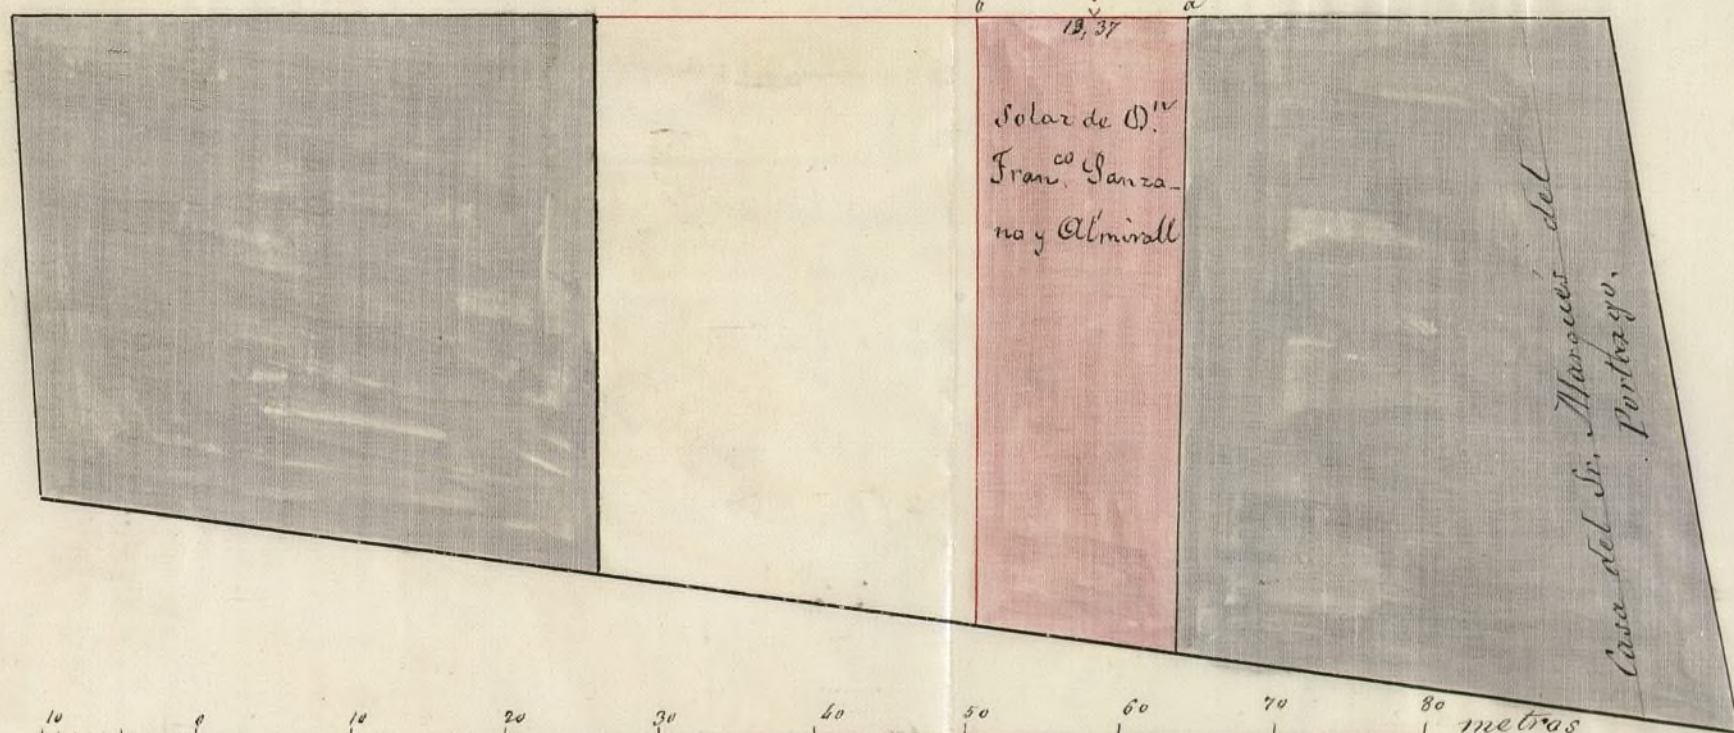 b a
13,37
Solar de D.ⁿ
Fran.ᶜᵒ Sanza-
no y Almirall
Casa del Sr. Marqués del
Portazgo.
10 0 10 20 30 40 50 60 70 80
metros